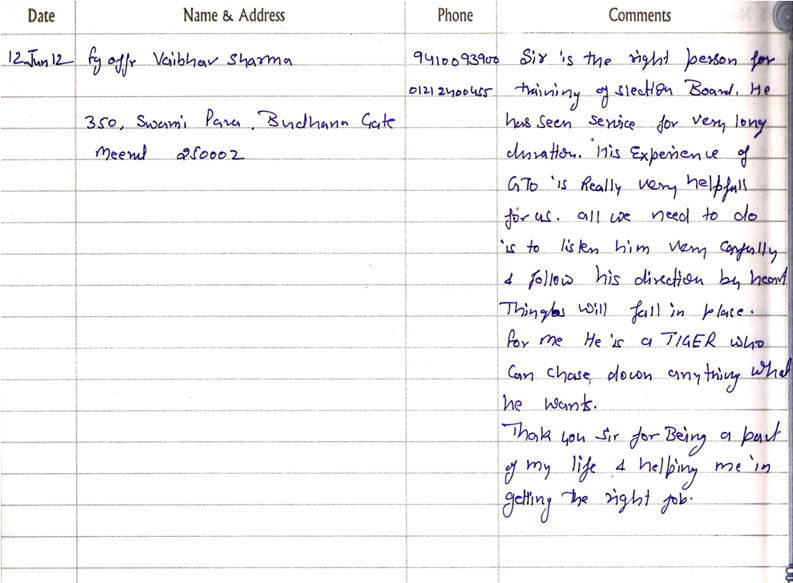 Date Name & Address Phone Comments
12 Jun 12 fg offr Vaibhav Sharma 9410093900 Sir is the right person for
01212400455 training of slection Board. He
350, Swami Para, Budhana Gate has seen service for very long
Meerut 250002 duration. His Experience of
GTO is Really very helpfull
for us. all we need to do
is to listen him very carfully
& follow his direction by heart
Things will fall in place.
for me He is a TIGER who
Can chase down anything what
he wants.
Thak you Sir for Being a part
of my life & helping me in
getting the right job.